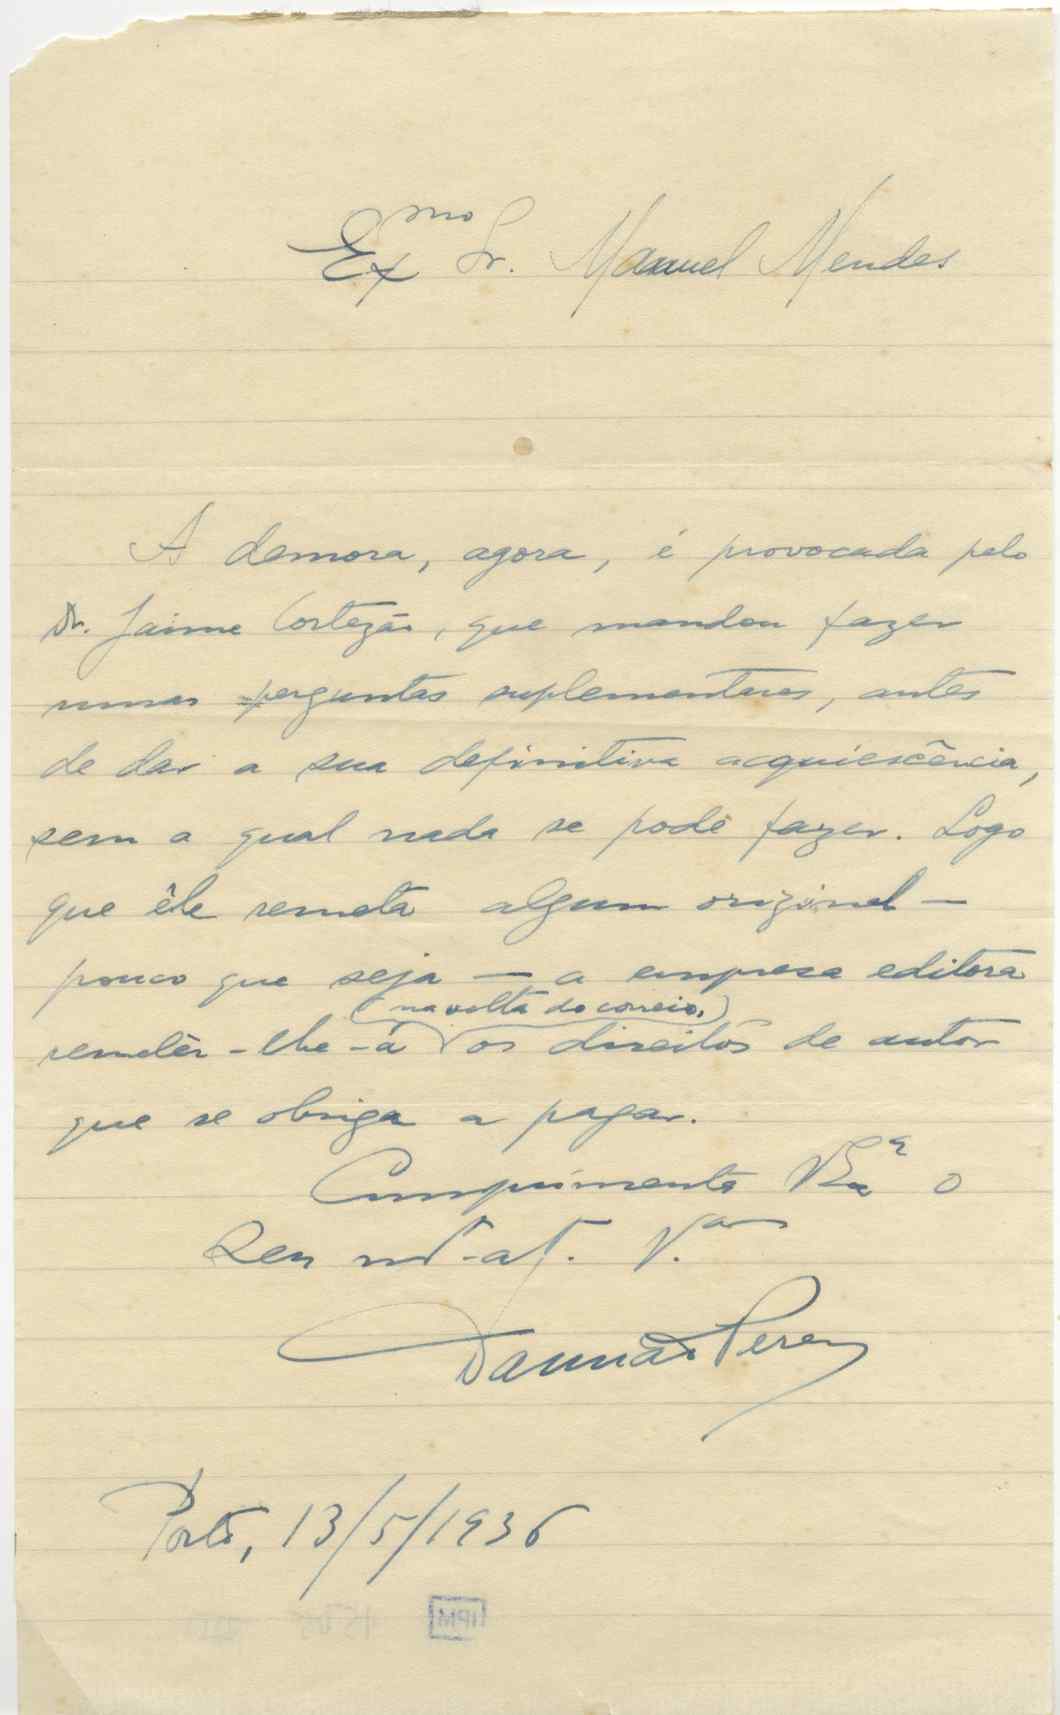 Exmo Sr. Manuel Mendes
A demora, agora, é provocada pelo
Dr. Jaime Cortezão, que mandou fazer
umas perguntas suplementares, antes
de dar a sua definitiva acquiescência,
sem a qual nada se pode fazer. Logo
que êle remeta algum original —
pouco que seja — a empresa editora
(na volta do correio,)
remeter-lhe-á os direitos de autor
que se obriga a pagar.
Cumprimenta V. Exa o
Seu mt. at. V.or
Damião Peres
Porto, 13/5/1936